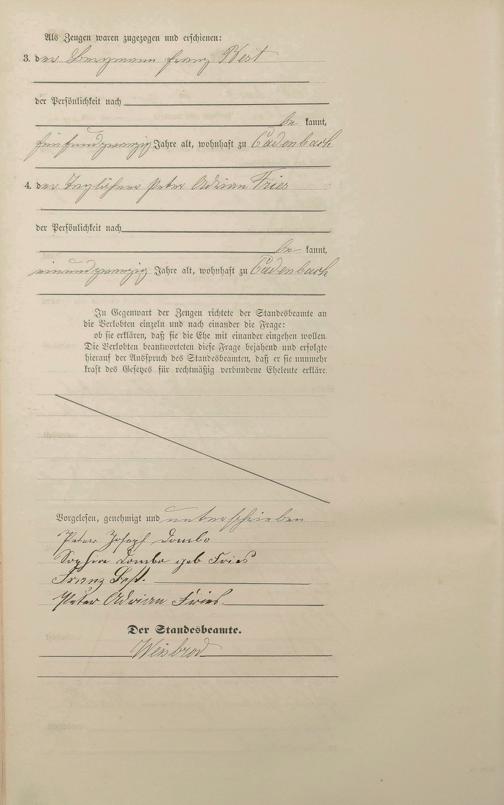 Als Zeugen waren zugezogen und erschienen:
3. der Bergmann Franz
der Persönlichkeit nach
be kannt,
fünfundzwanzig Jahre alt, wohnhaft zu Cadenbach
4. der Taglöhner Peter Adrian Fries
der Persönlichkeit nach
be kannt,
einundzwanzig Jahre alt, wohnhaft zu Cadenbach
In Gegenwart der Zeugen richtete der Standesbeamte an
die Verlobten einzeln und nach einander die Frage:
ob sie erklären, daß sie die Ehe mit einander eingehen wollen.
Die Verlobten beantworteten diese Frage bejahend und erfolgte
hierauf der Ausspruch des Standesbeamten, daß er sie nunmehr
kraft des Gesetzes für rechtmäßig verbundene Eheleute erkläre.
Vorgelesen, genehmigt und unterschrieben
Peter Joseph Dombo
Sophia Dombo geb Fries
Franz
Peter Adrian Fries
Der Standesbeamte.
Weisbrod